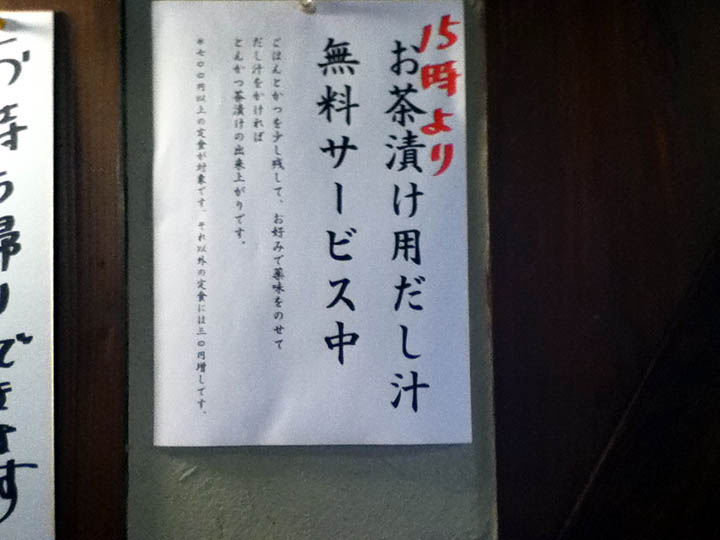 15時より
お茶漬け用だし汁
無料サービス中
ごはんとかつを少し残して、お好みで薬味をのせて
だし汁をかければ
とんかつ茶漬けの出来上がりです。
※七〇〇円以上の定食が対象です。それ以外の定食には三〇円増しです。
お持ち帰りできます